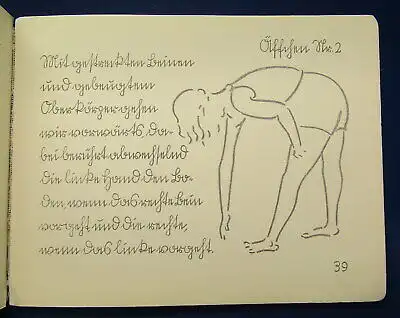 Äffchen Nr. 2
Mit gestreckten Beinen
und gebeugtem
Oberkörper gehen
wir vorwärts, da-
bei berührt abwechselnd
die linke Hand den Bo-
den, wenn das rechte Bein
vorgeht und die rechte,
wenn das linke vorgeht.
39